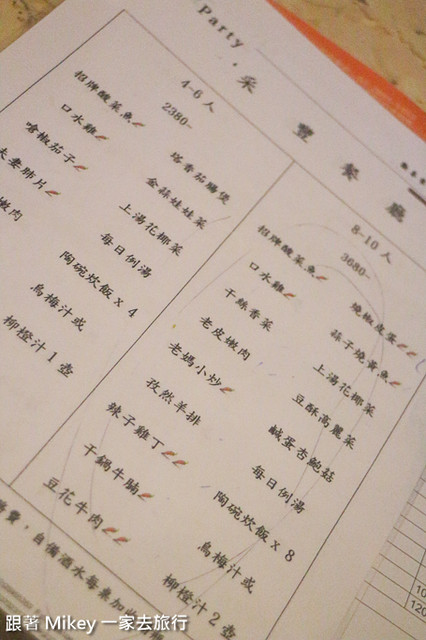 Party．采豐餐廳
4-6 人
2380-
招牌酸菜魚
口水雞
嗆椒茄子
夫妻肺片
嫩肉
塔香茄腸煲
金蒜娃娃菜
上湯花椰菜
每日例湯
陶碗炊飯 x 4
烏梅汁或
柳橙汁 1 壺
8-10 人
3680-
招牌酸菜魚
口水雞
干絲香菜
老皮嫩肉
老媽小炒
孜然羊排
辣子雞丁
干鍋牛腩
豆花牛肉
燒椒皮蛋
蒜子燒黃魚
上湯花椰菜
豆酥高麗菜
鹹蛋杏鮑菇
每日例湯
陶碗炊飯 x 8
烏梅汁或
柳橙汁 2 壺
務費，自備酒水每桌加收
跟著 Mikey 一家去旅行